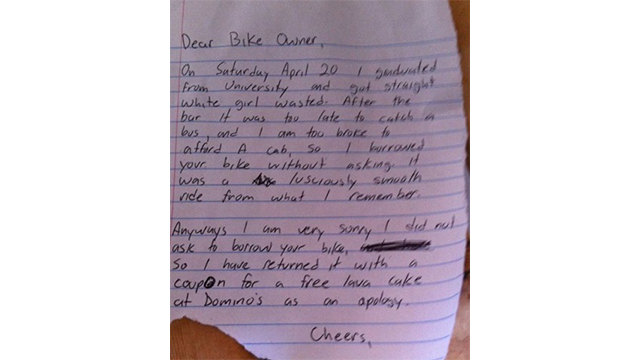 Dear Bike Owner,
On Saturday April 20 I graduated
from University and got straight
white girl wasted. After the
bar it was too late to catch a
bus, and I am too broke to
afford A cab, so I borrowed
your bike without asking. It
was a lusciously smooth
ride from what I remember.
Anyways I am very sorry I did not
ask to borrow your bike,
So I have returned it with a
coupon for a free lava cake
at Domino's as an apology.
Cheers,